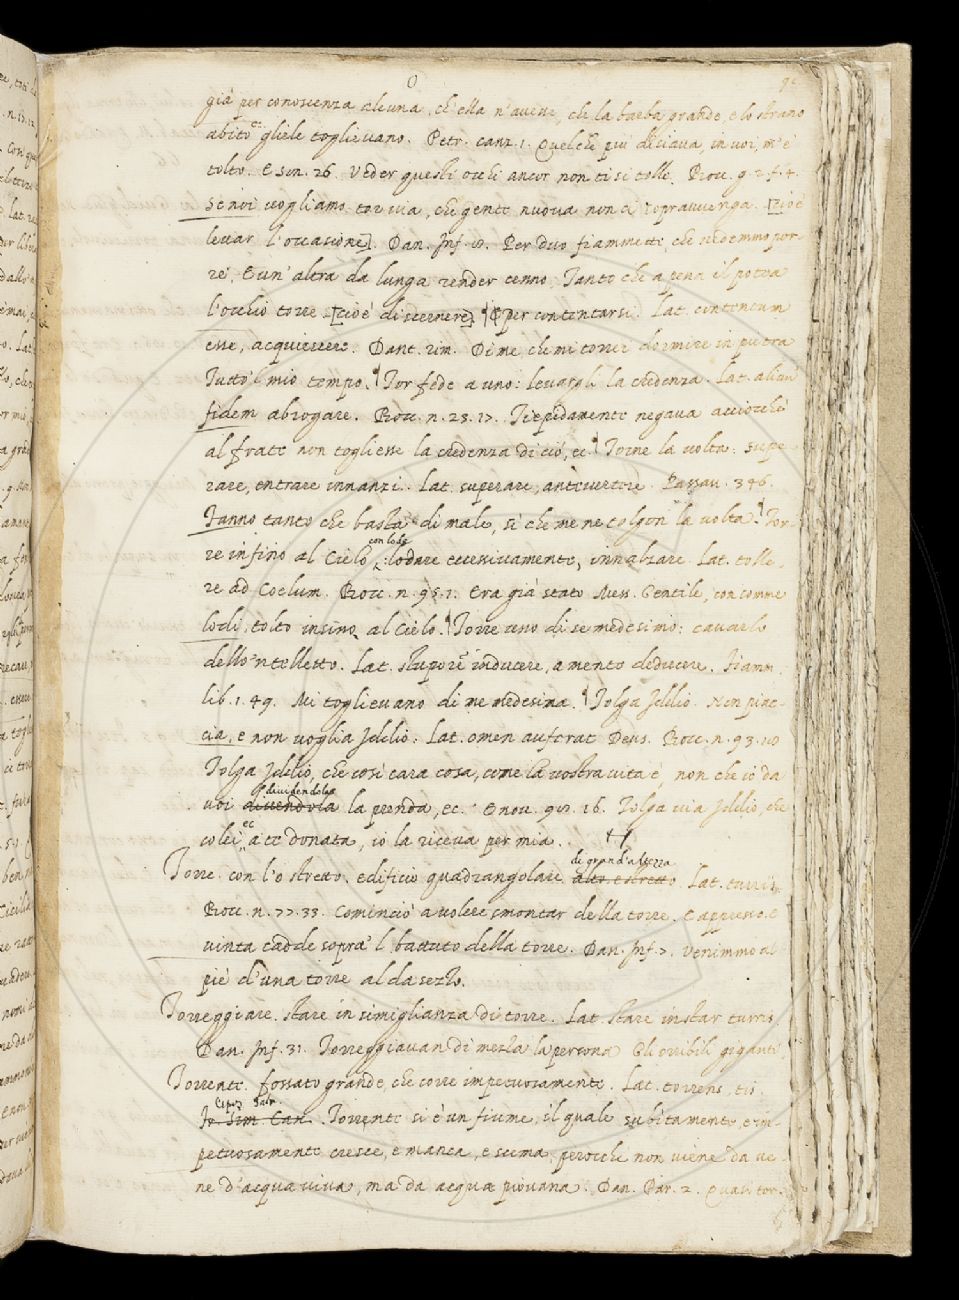 O
già per conoscenza alcuna, ch'ella n'avesse, che la barba grande, e lo strano
abito ec gliele toglievano. Petr. canz. 1. Quel che più disiava in voi, m'è
tolto. E son. 26. Veder questi occhi ancor non ti si tolle. Bocc. g. 2. f. 4.
Se noi vogliamo tor via, che gente nuova non ci sopravvenga. [cioè
levar l'occasione]. Dan. Inf. 8. Per duo fiammette, che vedemmo por-
re, E un'altra da lunga render cenno Tanto che a pena il potea
l'occhio torre [cioè discernere] ¶ E per contentarsi. Lat. contentum
esse, acquiescere. Dant. rim. Di me, che mi torrei dormire in pietra
Tutto 'l mio tempo. ¶ Tor fede a uno: levargli la credenza. Lat. alicui
fidem abrogare. Bocc. n. 23. 17. Tiepidamente negava acciocchè
al frate non togliesse la credenza di ciò, ec. ¶ Torne la volta: supe-
rare, entrare innanzi. Lat. superare, antevertere. Passav. 346.
Fanno tanto che basta di male, sì che me ne tolgon la volta. ¶ Tor-
re infino al Cielo, con lode
lodare eccessivamente, innalzare. Lat. tolle-
re ad Coelum. Bocc. n. 95. 1. Era già stato Mess. Gentile, con somme
lodi, tolto insino al Cielo. ¶ Torre uno di se medesimo: cavarlo
dello 'ntelletto. Lat. stuporem inducere, a mente deducere. Fiamm.
lib. 1. 49. Mi toglievano di me medesima. ¶ Tolga Iddio. Non piac-
cia, e non voglia Iddio. Lat. omen auferat Deus. Bocc. n. 93. 10
Tolga Iddio, che così cara cosa, come la vostra vita è, non che io da
voi divendola dividendola la prenda, ec. E nov. 98. 16. Tolga via Iddio, che
colei, ec a te donata, io la riceva per mia.
Torre. con l'o stretto. edificio quadrangolare alto e stretto di grand'altezza. Lat. turris.
Bocc. n. 77. 33. Cominciò a volere smontar della torre. E appresso. E
vinta cadde sopra 'l battuto della torre. Dan. Inf. 7. Venimmo al
piè d'una torre al dassezzo.
Torreggiare. stare in simiglianza di torre. Lat. stare instar turris.
Dan. Inf. 31. Torreggiavan di mezza la persona Gli orribili giganti.
Torrente. fossato grande, che corre impetuosamente. Lat. torrens, tis.
Torrente si è un fiume, il quale subitamente, e im-
petuosamente cresce, e manca, e scema, perocchè non viene da ve-
ne d'acqua viva, ma da acqua piovana. Dan. Par. 2. Quasi tor-